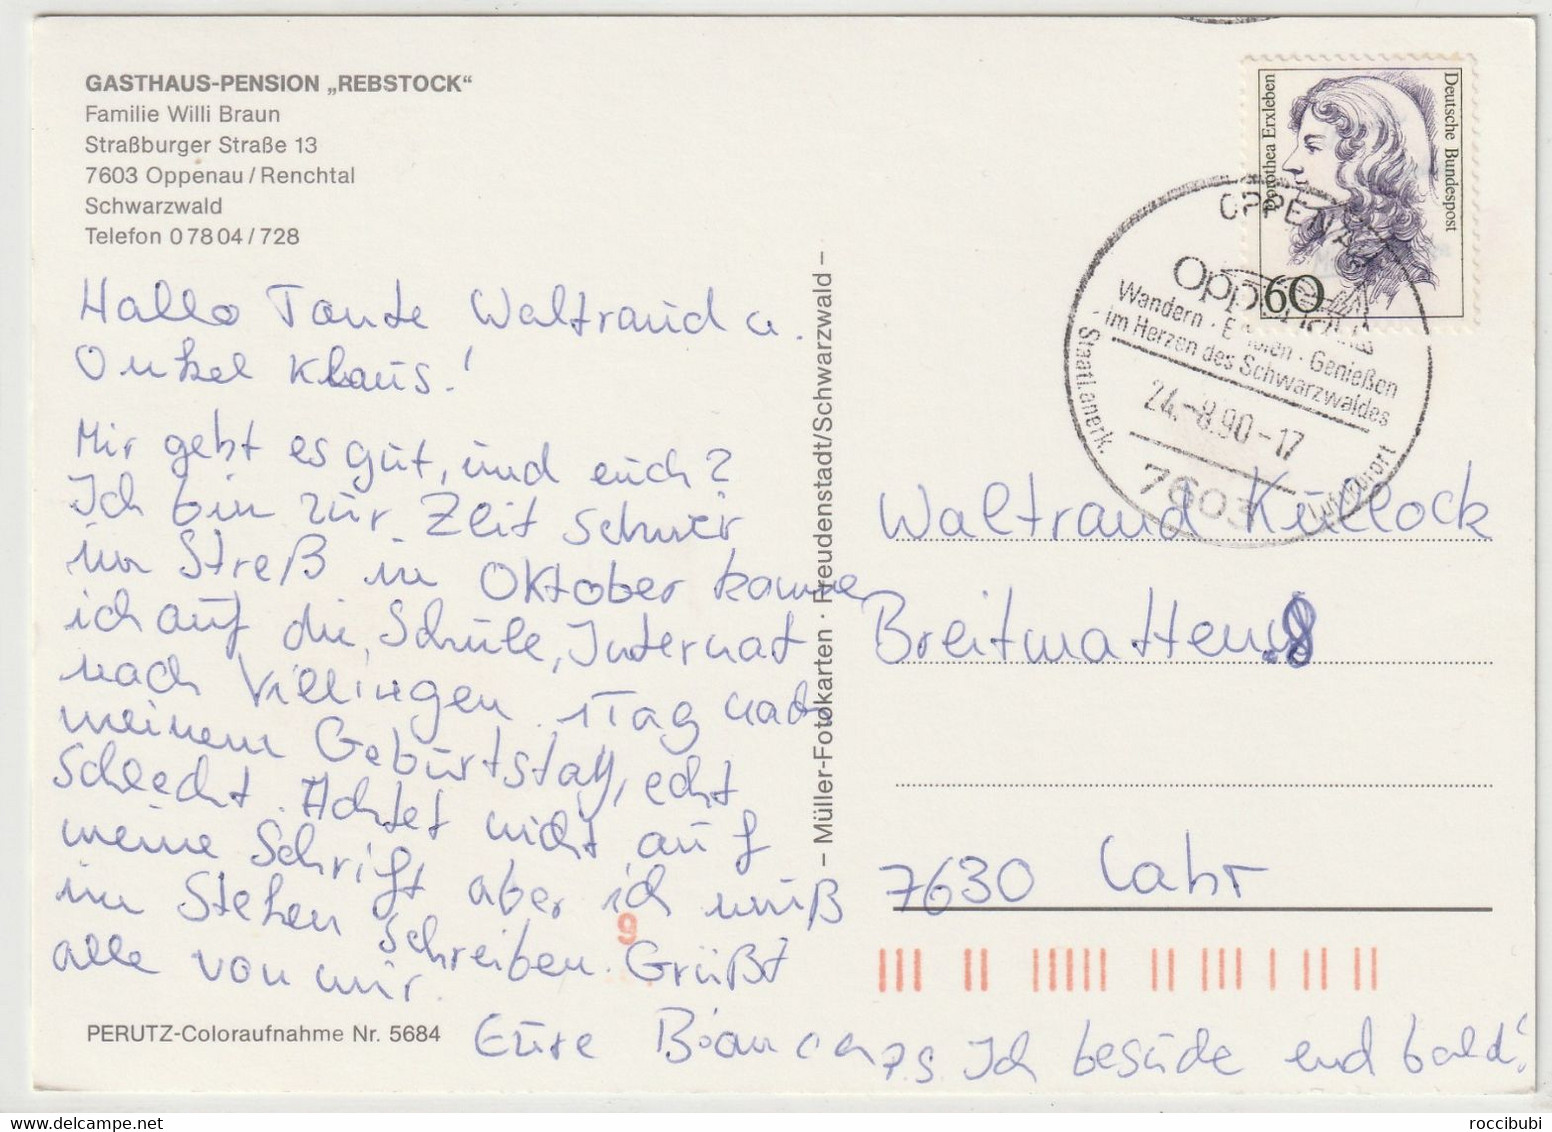 GASTHAUS-PENSION „REBSTOCK“
Familie Willi Braun
Straßburger Straße 13
7603 Oppenau/Renchtal
Schwarzwald
Telefon 07804/728
Hallo Tante Waltraud u.
Onkel Klaus!
Mir geht es gut, und euch?
Ich bin zur Zeit schwer
im Streß in Oktober komme
ich auf die, Schule, Internat
nach Villingen. 1 Tag nach
meinem Geburtstag, echt
schlecht. Achtet nicht auf
meine Schrift aber ich muß
im Stehen schreiben. Grüßt
alle von mir.
Eure Bianca
P.S. Ich besuche eud bald!
PERUTZ-Coloraufnahme Nr. 5684
– Müller-Fotokarten · Freudenstadt/Schwarzwald –
Dorothea Erxleben
Deutsche Bundespost
60
OPPENAU
Oppenau
Wandern · Erholen · Genießen
im Herzen des Schwarzwaldes
24.-8.90-17
7603
Staatl. anerk. Luftkurort
Waltraud Küllock
Breitmatten 8
7630 Lahr
9
roccibubi